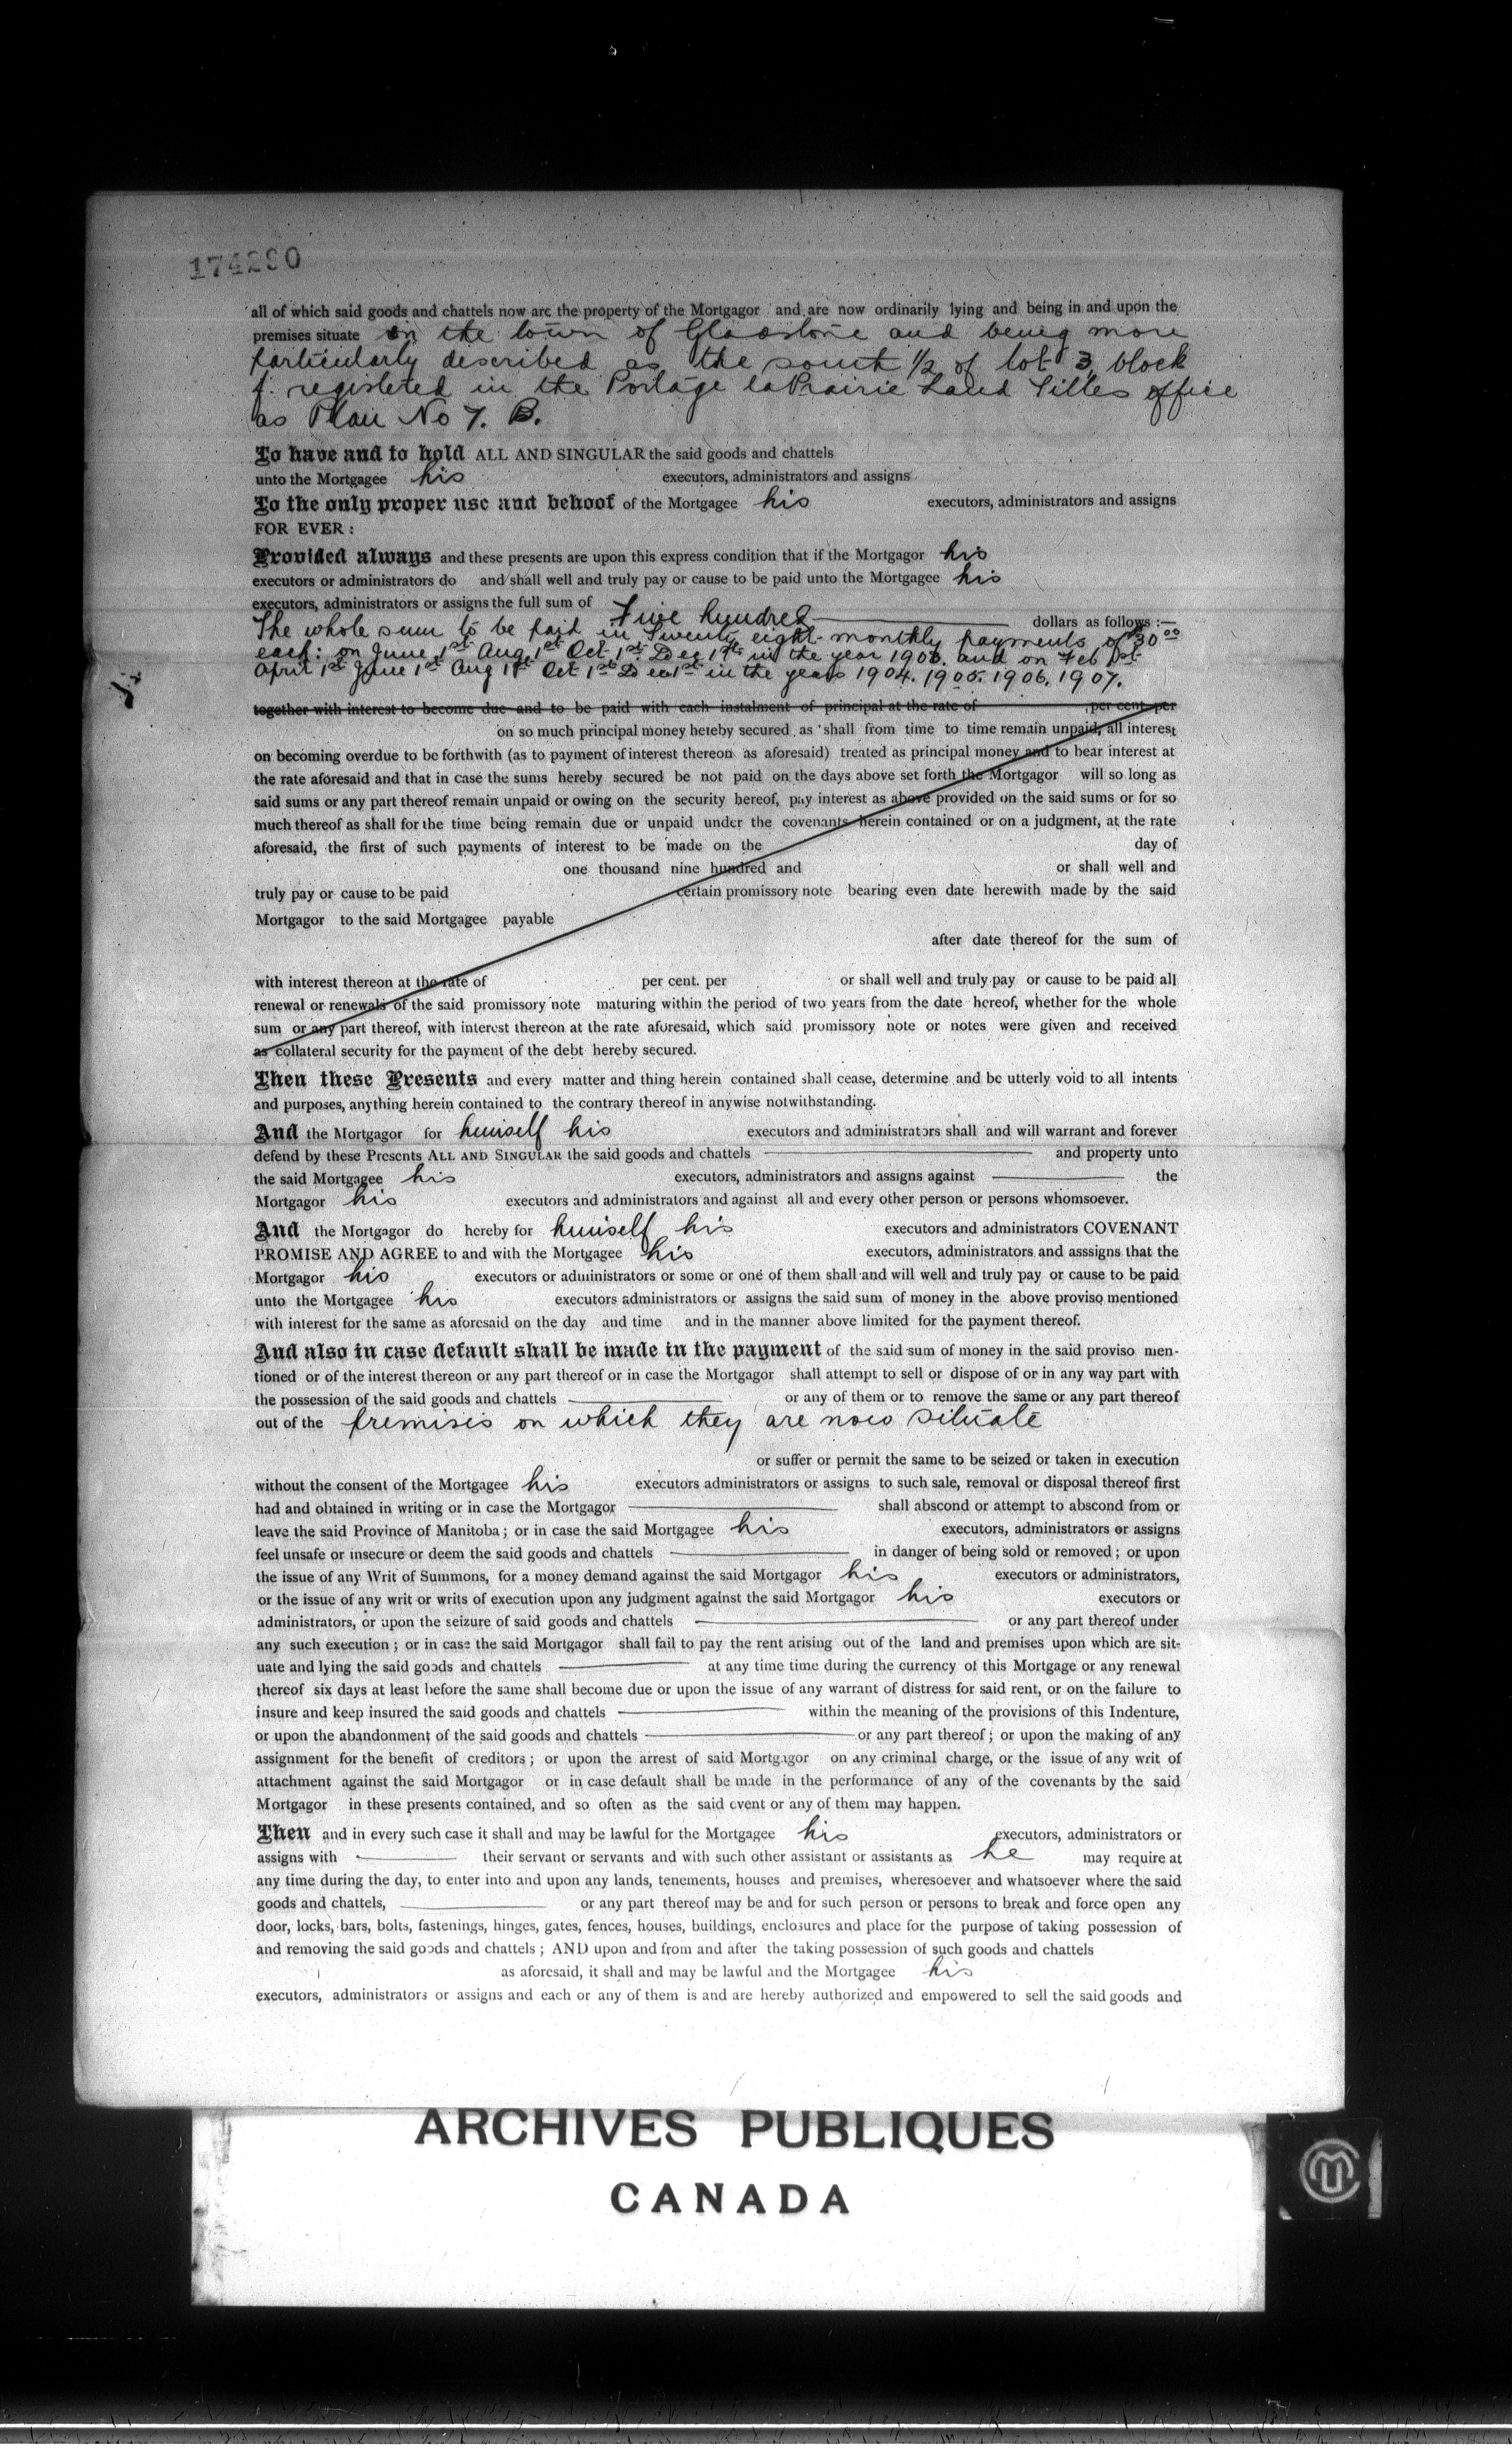 174290
all of which said goods and chattels now are the property of the Mortgagor and are now ordinarily lying and being in and upon the
premises situate in the town of Gladstone and being more
particularly described as the south 1/2 of lot 3, block
f. registered in the Portage laPrairie Land Titles office
as Plan No 7. B.
To have and to hold ALL AND SINGULAR the said goods and chattels
unto the Mortgagee his executors, administrators and assigns
To the only proper use and behoof of the Mortgagee his executors, administrators and assigns
FOR EVER :
Provided always and these presents are upon this express condition that if the Mortgagor his
executors or administrators do and shall well and truly pay or cause to be paid unto the Mortgagee his
executors, administrators or assigns the full sum of Five hundred dollars as follows :—
The whole sum to be paid in Twenty eight monthly payments of 30 00
each: on June 1st Aug 1st Oct 1st Dec 1st in the year 1903. and on Feb 1st
April 1st June 1st Aug 1st Oct 1st Dec 1st in the years 1904. 1905. 1906. 1907.
together with interest to become due and to be paid with each instalment of principal at the rate of per cent. per
on so much principal money hereby secured as shall from time to time remain unpaid, all interest
on becoming overdue to be forthwith (as to payment of interest thereon as aforesaid) treated as principal money and to bear interest at
the rate aforesaid and that in case the sums hereby secured be not paid on the days above set forth the Mortgagor will so long as
said sums or any part thereof remain unpaid or owing on the security hereof, pay interest as above provided on the said sums or for so
much thereof as shall for the time being remain due or unpaid under the covenants herein contained or on a judgment, at the rate
aforesaid, the first of such payments of interest to be made on the day of
one thousand nine hundred and or shall well and
truly pay or cause to be paid certain promissory note bearing even date herewith made by the said
Mortgagor to the said Mortgagee payable
after date thereof for the sum of
with interest thereon at the rate of per cent. per or shall well and truly pay or cause to be paid all
renewal or renewals of the said promissory note maturing within the period of two years from the date hereof, whether for the whole
sum or any part thereof, with interest thereon at the rate aforesaid, which said promissory note or notes were given and received
as collateral security for the payment of the debt hereby secured.
Then these Presents and every matter and thing herein contained shall cease, determine and be utterly void to all intents
and purposes, anything herein contained to the contrary thereof in anywise notwithstanding.
And the Mortgagor for himself his executors and administrators shall and will warrant and forever
defend by these Presents ALL AND SINGULAR the said goods and chattels and property unto
the said Mortgagee his executors, administrators and assigns against the
Mortgagor his executors and administrators and against all and every other person or persons whomsoever.
And the Mortgagor do hereby for himself his executors and administrators COVENANT
PROMISE AND AGREE to and with the Mortgagee his executors, administrators and asssigns that the
Mortgagor his executors or administrators or some or one of them shall and will well and truly pay or cause to be paid
unto the Mortgagee his executors administrators or assigns the said sum of money in the above proviso mentioned
with interest for the same as aforesaid on the day and time and in the manner above limited for the payment thereof.
And also in case default shall be made in the payment of the said sum of money in the said proviso men-
tioned or of the interest thereon or any part thereof or in case the Mortgagor shall attempt to sell or dispose of or in any way part with
the possession of the said goods and chattels or any of them or to remove the same or any part thereof
out of the premises on which they are now situate
or suffer or permit the same to be seized or taken in execution
without the consent of the Mortgagee his executors administrators or assigns to such sale, removal or disposal thereof first
had and obtained in writing or in case the Mortgagor shall abscond or attempt to abscond from or
leave the said Province of Manitoba ; or in case the said Mortgagee his executors, administrators or assigns
feel unsafe or insecure or deem the said goods and chattels in danger of being sold or removed ; or upon
the issue of any Writ of Summons, for a money demand against the said Mortgagor his executors or administrators,
or the issue of any writ or writs of execution upon any judgment against the said Mortgagor his executors or
administrators, or upon the seizure of said goods and chattels or any part thereof under
any such execution ; or in case the said Mortgagor shall fail to pay the rent arising out of the land and premises upon which are sit-
uate and lying the said goods and chattels at any time time during the currency of this Mortgage or any renewal
thereof six days at least before the same shall become due or upon the issue of any warrant of distress for said rent, or on the failure to
insure and keep insured the said goods and chattels within the meaning of the provisions of this Indenture,
or upon the abandonment of the said goods and chattels or any part thereof ; or upon the making of any
assignment for the benefit of creditors ; or upon the arrest of said Mortgagor on any criminal charge, or the issue of any writ of
attachment against the said Mortgagor or in case default shall be made in the performance of any of the covenants by the said
Mortgagor in these presents contained, and so often as the said event or any of them may happen.
Then and in every such case it shall and may be lawful for the Mortgagee his executors, administrators or
assigns with their servant or servants and with such other assistant or assistants as he may require at
any time during the day, to enter into and upon any lands, tenements, houses and premises, wheresoever and whatsoever where the said
goods and chattels, or any part thereof may be and for such person or persons to break and force open any
door, locks, bars, bolts, fastenings, hinges, gates, fences, houses, buildings, enclosures and place for the purpose of taking possession of
and removing the said goods and chattels ; AND upon and from and after the taking possession of such goods and chattels
as aforesaid, it shall and may be lawful and the Mortgagee his
executors, administrators or assigns and each or any of them is and are hereby authorized and empowered to sell the said goods and
ARCHIVES PUBLIQUES
CANADA